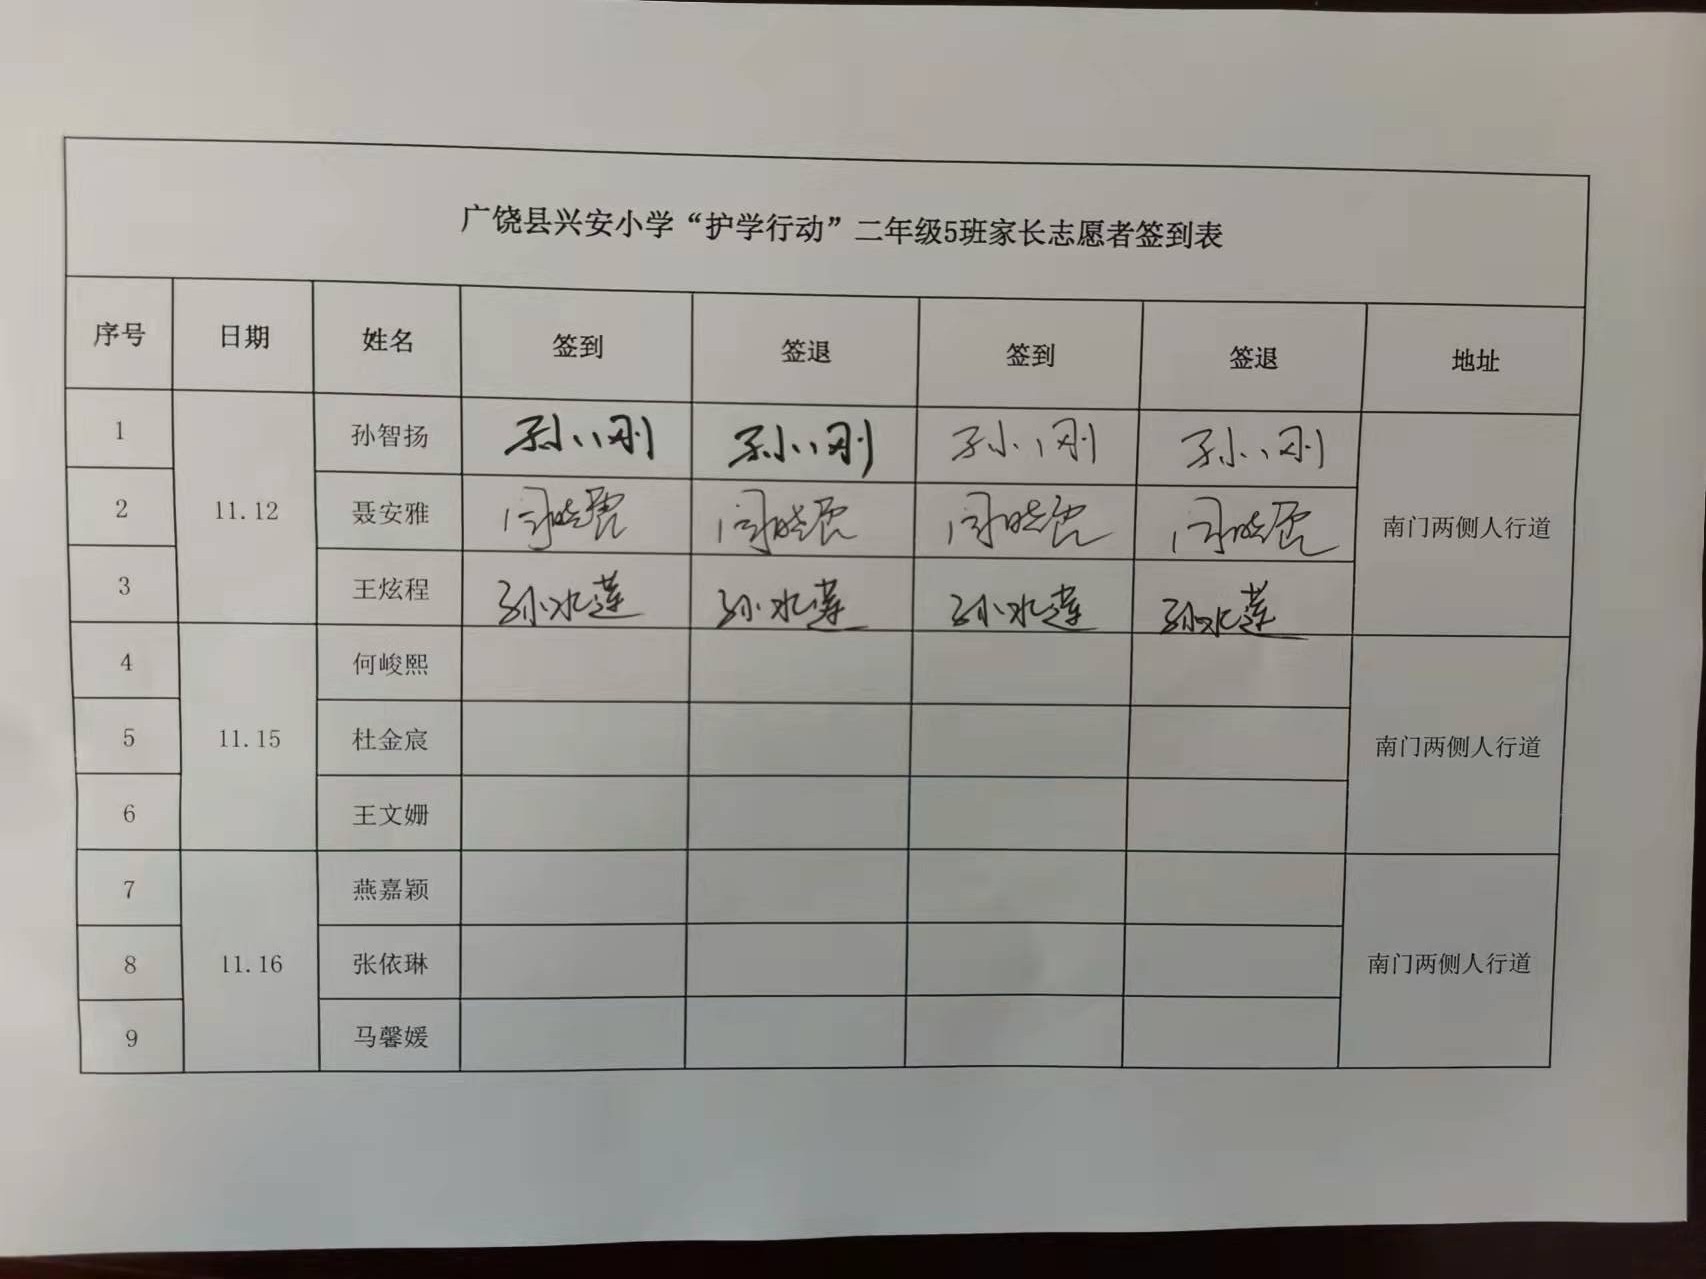 广饶县兴安小学“护学行动”二年级5班家长志愿者签到表
序号 日期 姓名 签到 签退 签到 签退 地址
1 11.12 孙智扬 孙小刚 孙小刚 孙小刚 孙小刚 南门两侧人行道
2 聂安雅
3 王炫程 孙水莲 孙水莲 孙水莲 孙水莲
4 11.15 何峻熙 南门两侧人行道
5 杜金宸
6 王文姗
7 11.16 燕嘉颖 南门两侧人行道
8 张依琳
9 马馨媛